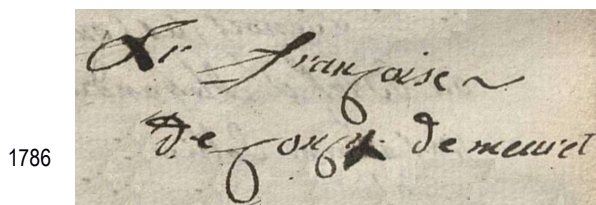 Sr françoise
De
De meuret
1786